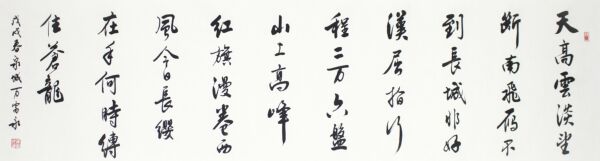 天高雲淡望
断南飛雁不
到長城非好
漢屈指行
程二万六盤
山上高峰
紅旗漫卷西
風今日長纓
在手何時縛
住蒼龍
戊戌春泉城